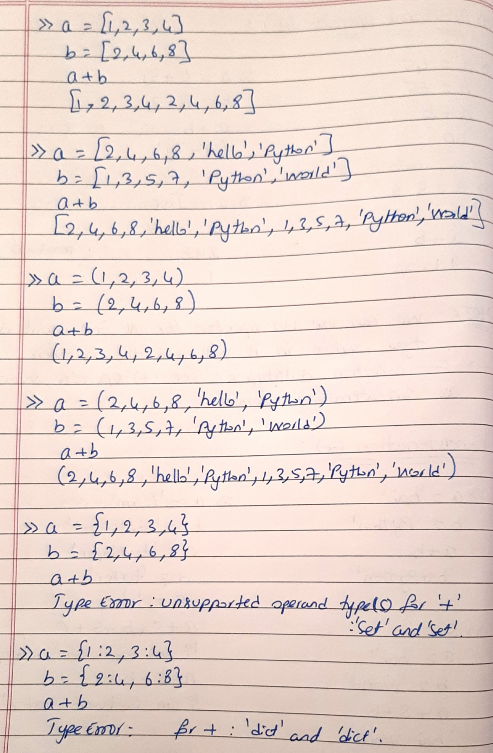 >> a = [1,2,3,4]
b = [2,4,6,8]
a+b
[1,2,3,4,2,4,6,8]
>> a = [2,4,6,8,'hello','Python']
b = [1,3,5,7,'Python','world']
a+b
[2,4,6,8,'hello','Python',1,3,5,7,'Python','world']
>> a = (1,2,3,4)
b = (2,4,6,8)
a+b
(1,2,3,4,2,4,6,8)
>> a = (2,4,6,8,'hello','Python')
b = (1,3,5,7,'Python','world')
a+b
(2,4,6,8,'hello','Python',1,3,5,7,'Python','world')
>> a = {1,2,3,4}
b = {2,4,6,8}
a+b
Type Error : unsupported operand type(s) for '+'
:'set' and 'set'.
>> a = {1:2, 3:4}
b = {2:4, 6:8}
a+b
Type Error: for + : 'dict' and 'dict'.